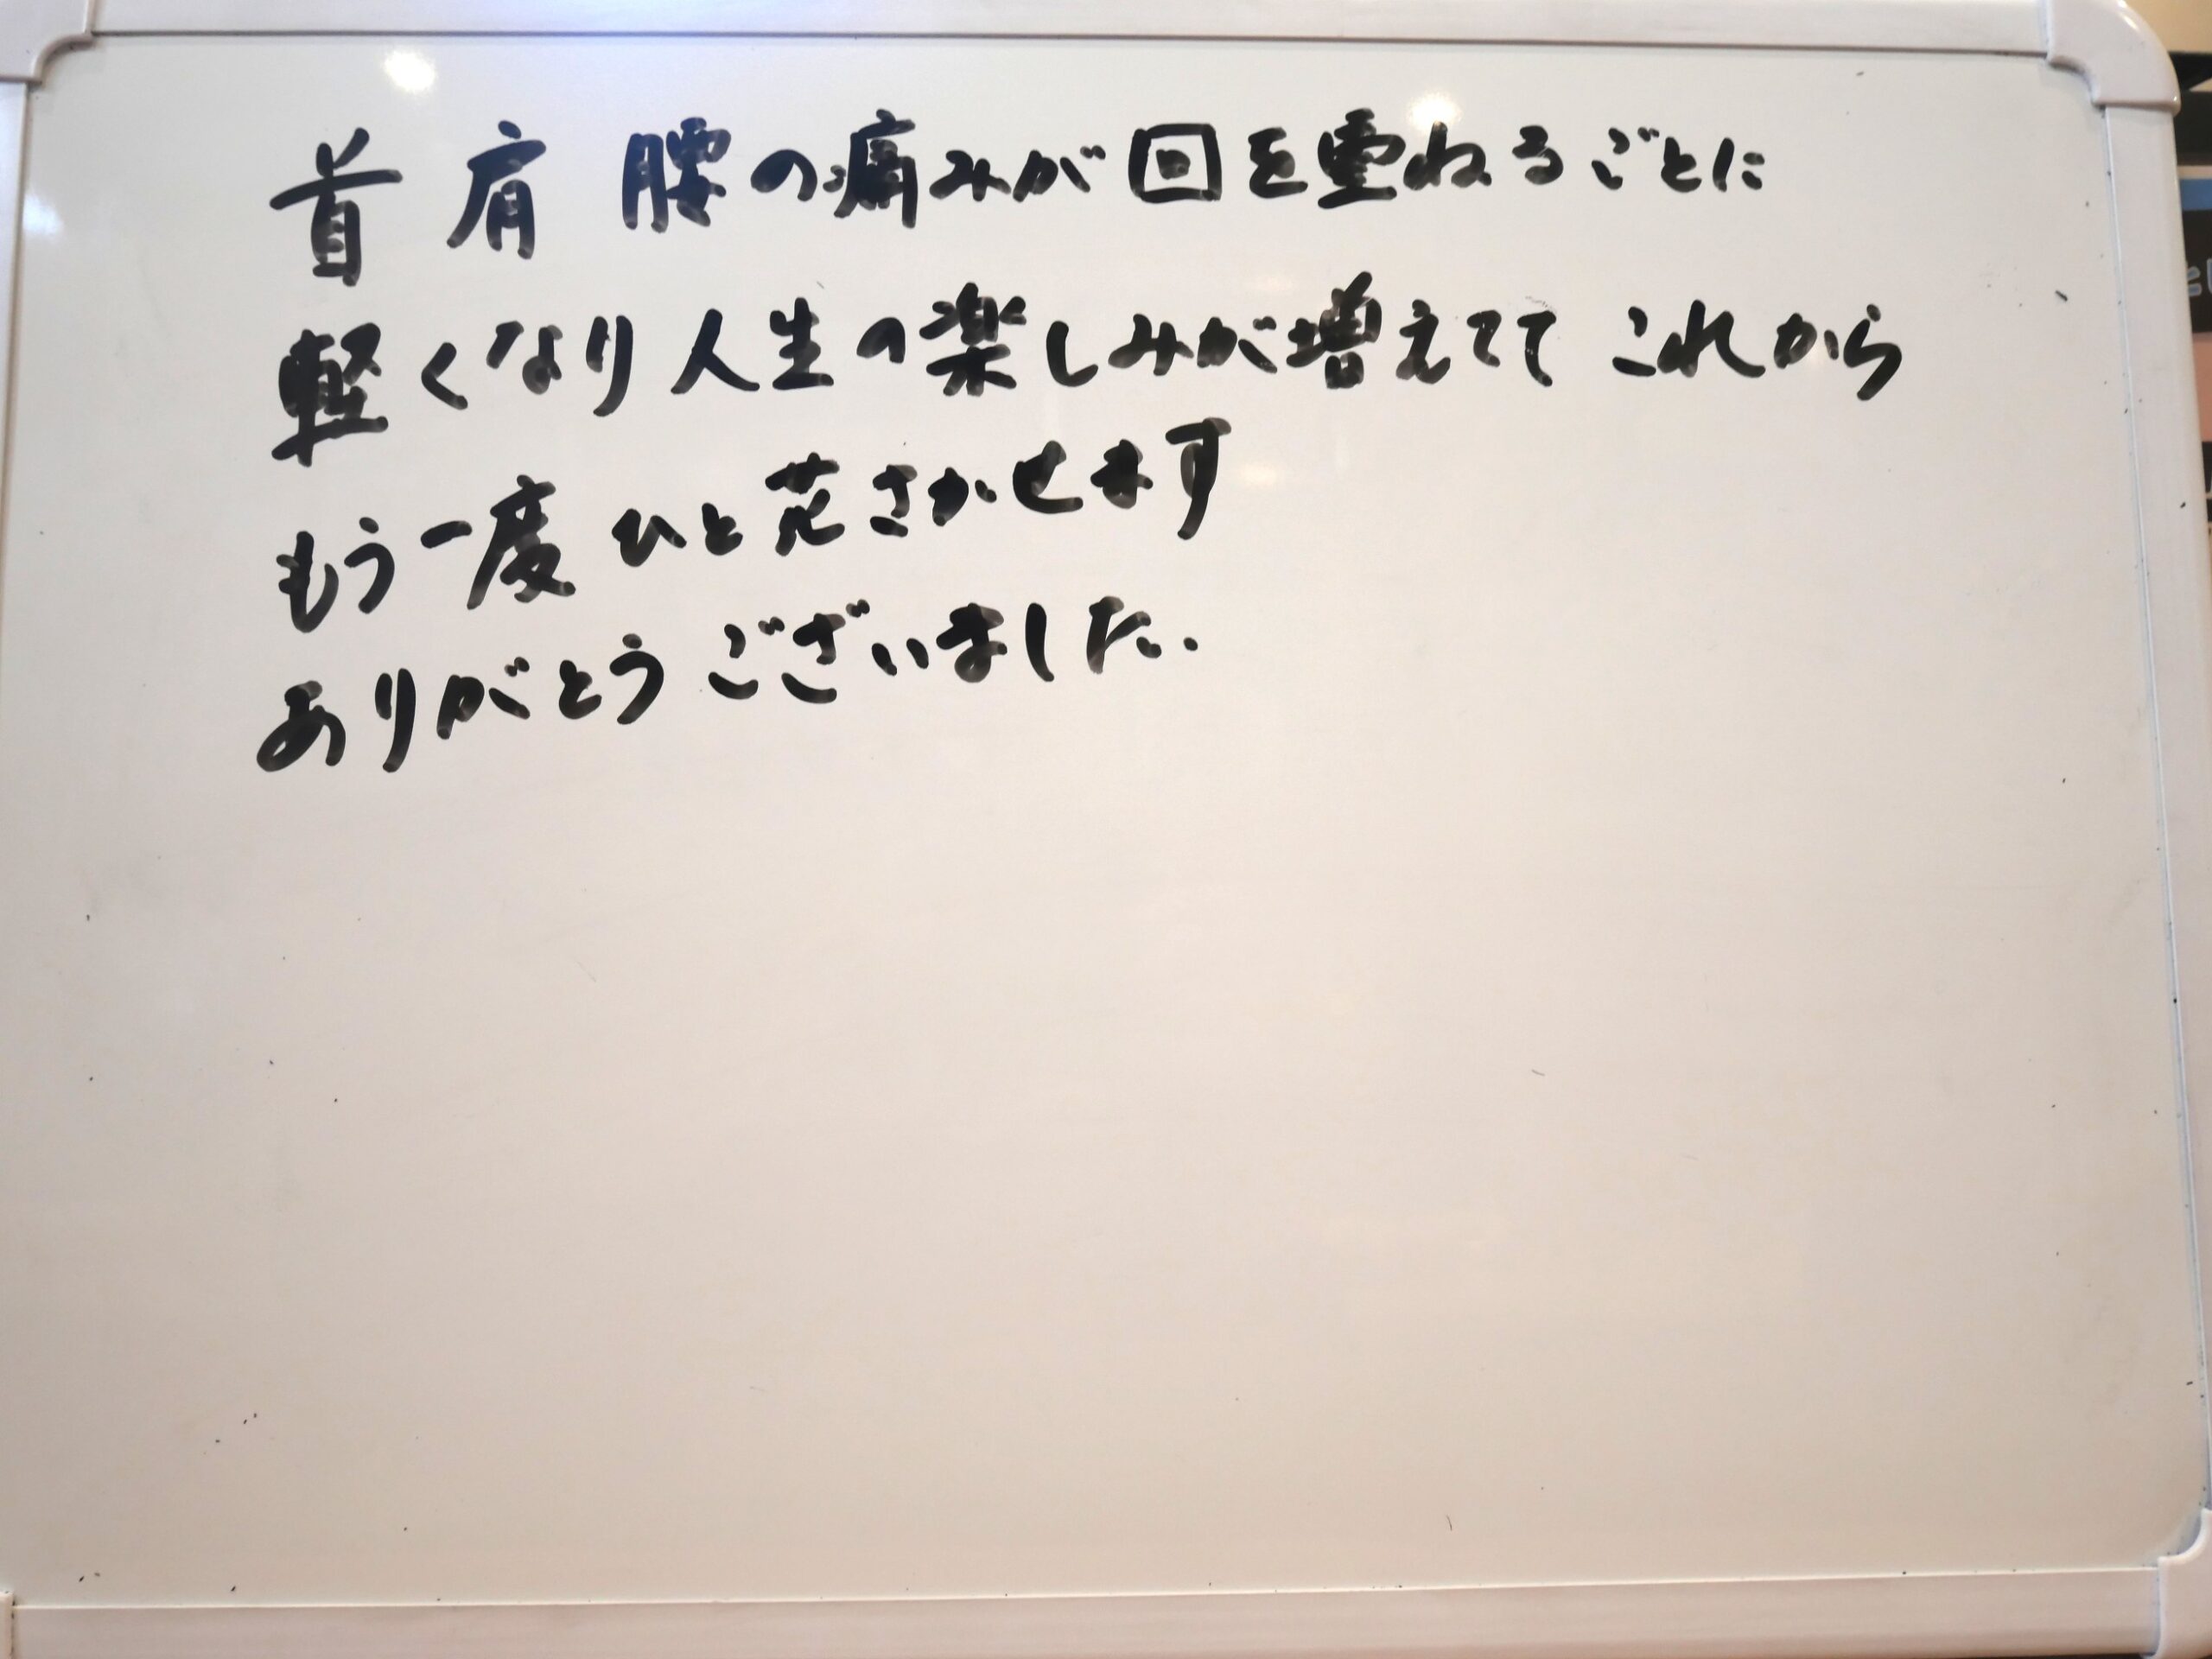 首 肩 腰の痛みが回を重ねるごとに
軽くなり人生の楽しみが増えてて これから
もう一度 ひと花さかせます
ありがとうございました.